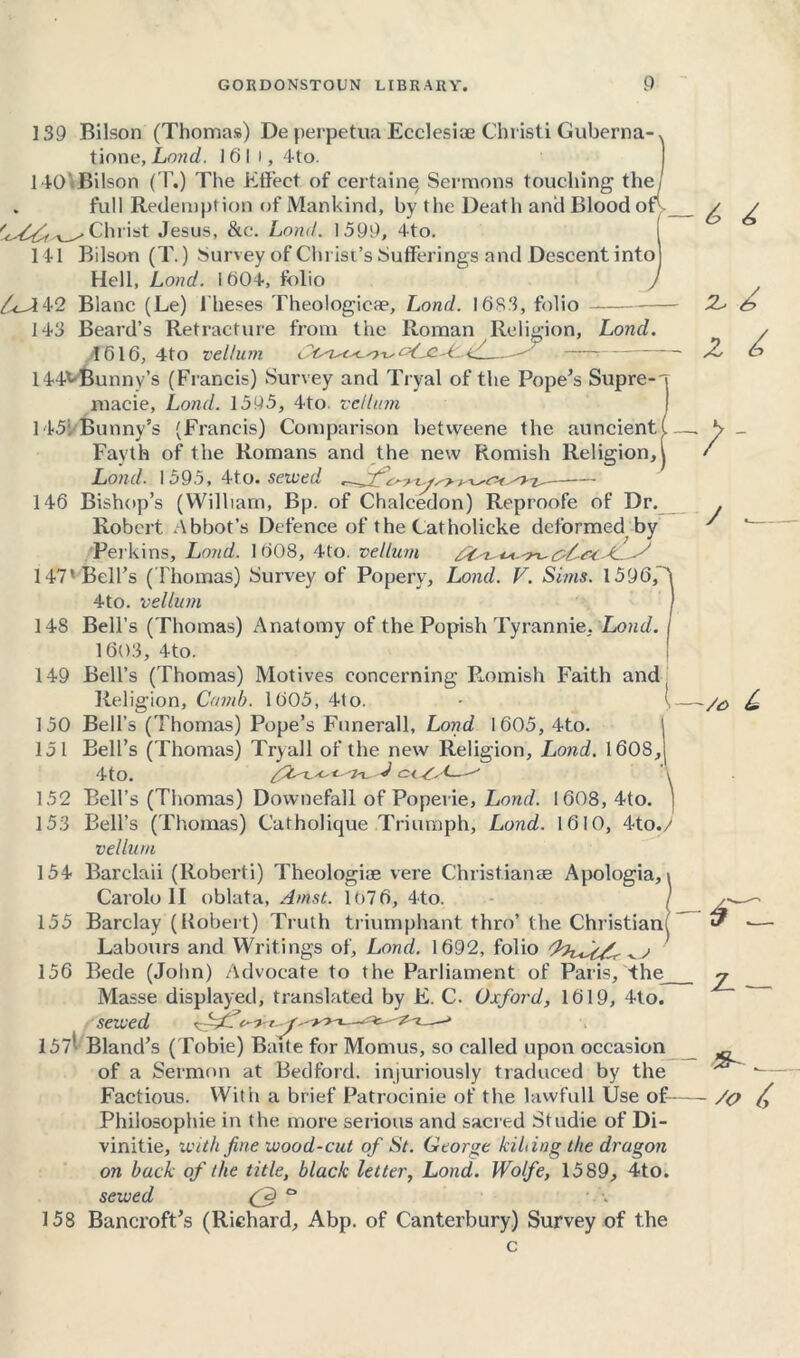 GORDONSTOUN LIBRARY. 9
139 Bilson (Thomas) De perpetua Ecclesiæ Christi Guberna-
tione, Lond. 1611, 4to.
140 Bilson (T.) The Effect of certaine Sermons touching the
full Redemption of Mankind, by the Death and Blood of
Christ Jesus, &c. Lond. 1599, 4to.
6 6
141 Bilson (T.) Survey of Christ's Sufferings and Descent into
Hell, Lond. 1604, folio
142 Blanc (Le) Theses Theologicæ, Lond. 1683, folio 2 6
143 Beard's Retracture from the Roman Religion, Lond.
1616, 4to vellum 2 6
144 Bunny's (Francis) Survey and Tryal of the Pope's Supre-
macie, Lond. 1595, 4to. vellum
145 Bunny's (Francis) Comparison betweene the auncient 7 -
Fayth of the Romans and the new Romish Religion,
Lond. 1595, 4to. sewed
146 Bishop's (William, Bp. of Chalcedon) Reproofe of Dr.
Robert Abbot's Defence of the Catholicke deformed by
Perkins, Lond. 1608, 4to. vellum
147 Bell's (Thomas) Survey of Popery, Lond. V. Sims. 1596,
4to. vellum
148 Bell's (Thomas) Anatomy of the Popish Tyrannie, Lond.
1603, 4to.
149 Bell's (Thomas) Motives concerning Romish Faith and
Religion, Camb. 1605, 4to. 10 6
150 Bell's (Thomas) Pope's Funerall, Lond 1605, 4to.
151 Bell's (Thomas) Tryall of the new Religion, Lond. 1608,
4to.
152 Bell's (Thomas) Downefall of Poperie, Lond. 1608, 4to.
153 Bell's (Thomas) Catholique Triumph, Lond. 1610, 4to.
vellum
154 Barclaii (Roberti) Theologiæ vere Christianæ Apologia,
Carolo II oblata, Amst. 1676, 4to.
155 Barclay (Robert) Truth triumphant thro' the Christian
Labours and Writings of, Lond. 1692, folio
156 Bede (John) Advocate to the Parliament of Paris, the
Masse displayed, translated by E. C. Oxford, 1619, 4to.
sewed
157 Bland's (Tobie) Baite for Momus, so called upon occasion
of a Sermon at Bedford. injuriously traduced by the
Factious. With a brief Patrocinie of the lawfull Use of 10 6
Philosophie in the more serious and sacred Studie of Di-
vinitie, with fine wood-cut of St. George killing the dragon
on back of the title, black letter, Lond. Wolfe, 1589, 4to.
sewed
158 Bancroft's (Richard, Abp. of Canterbury) Survey of the
C